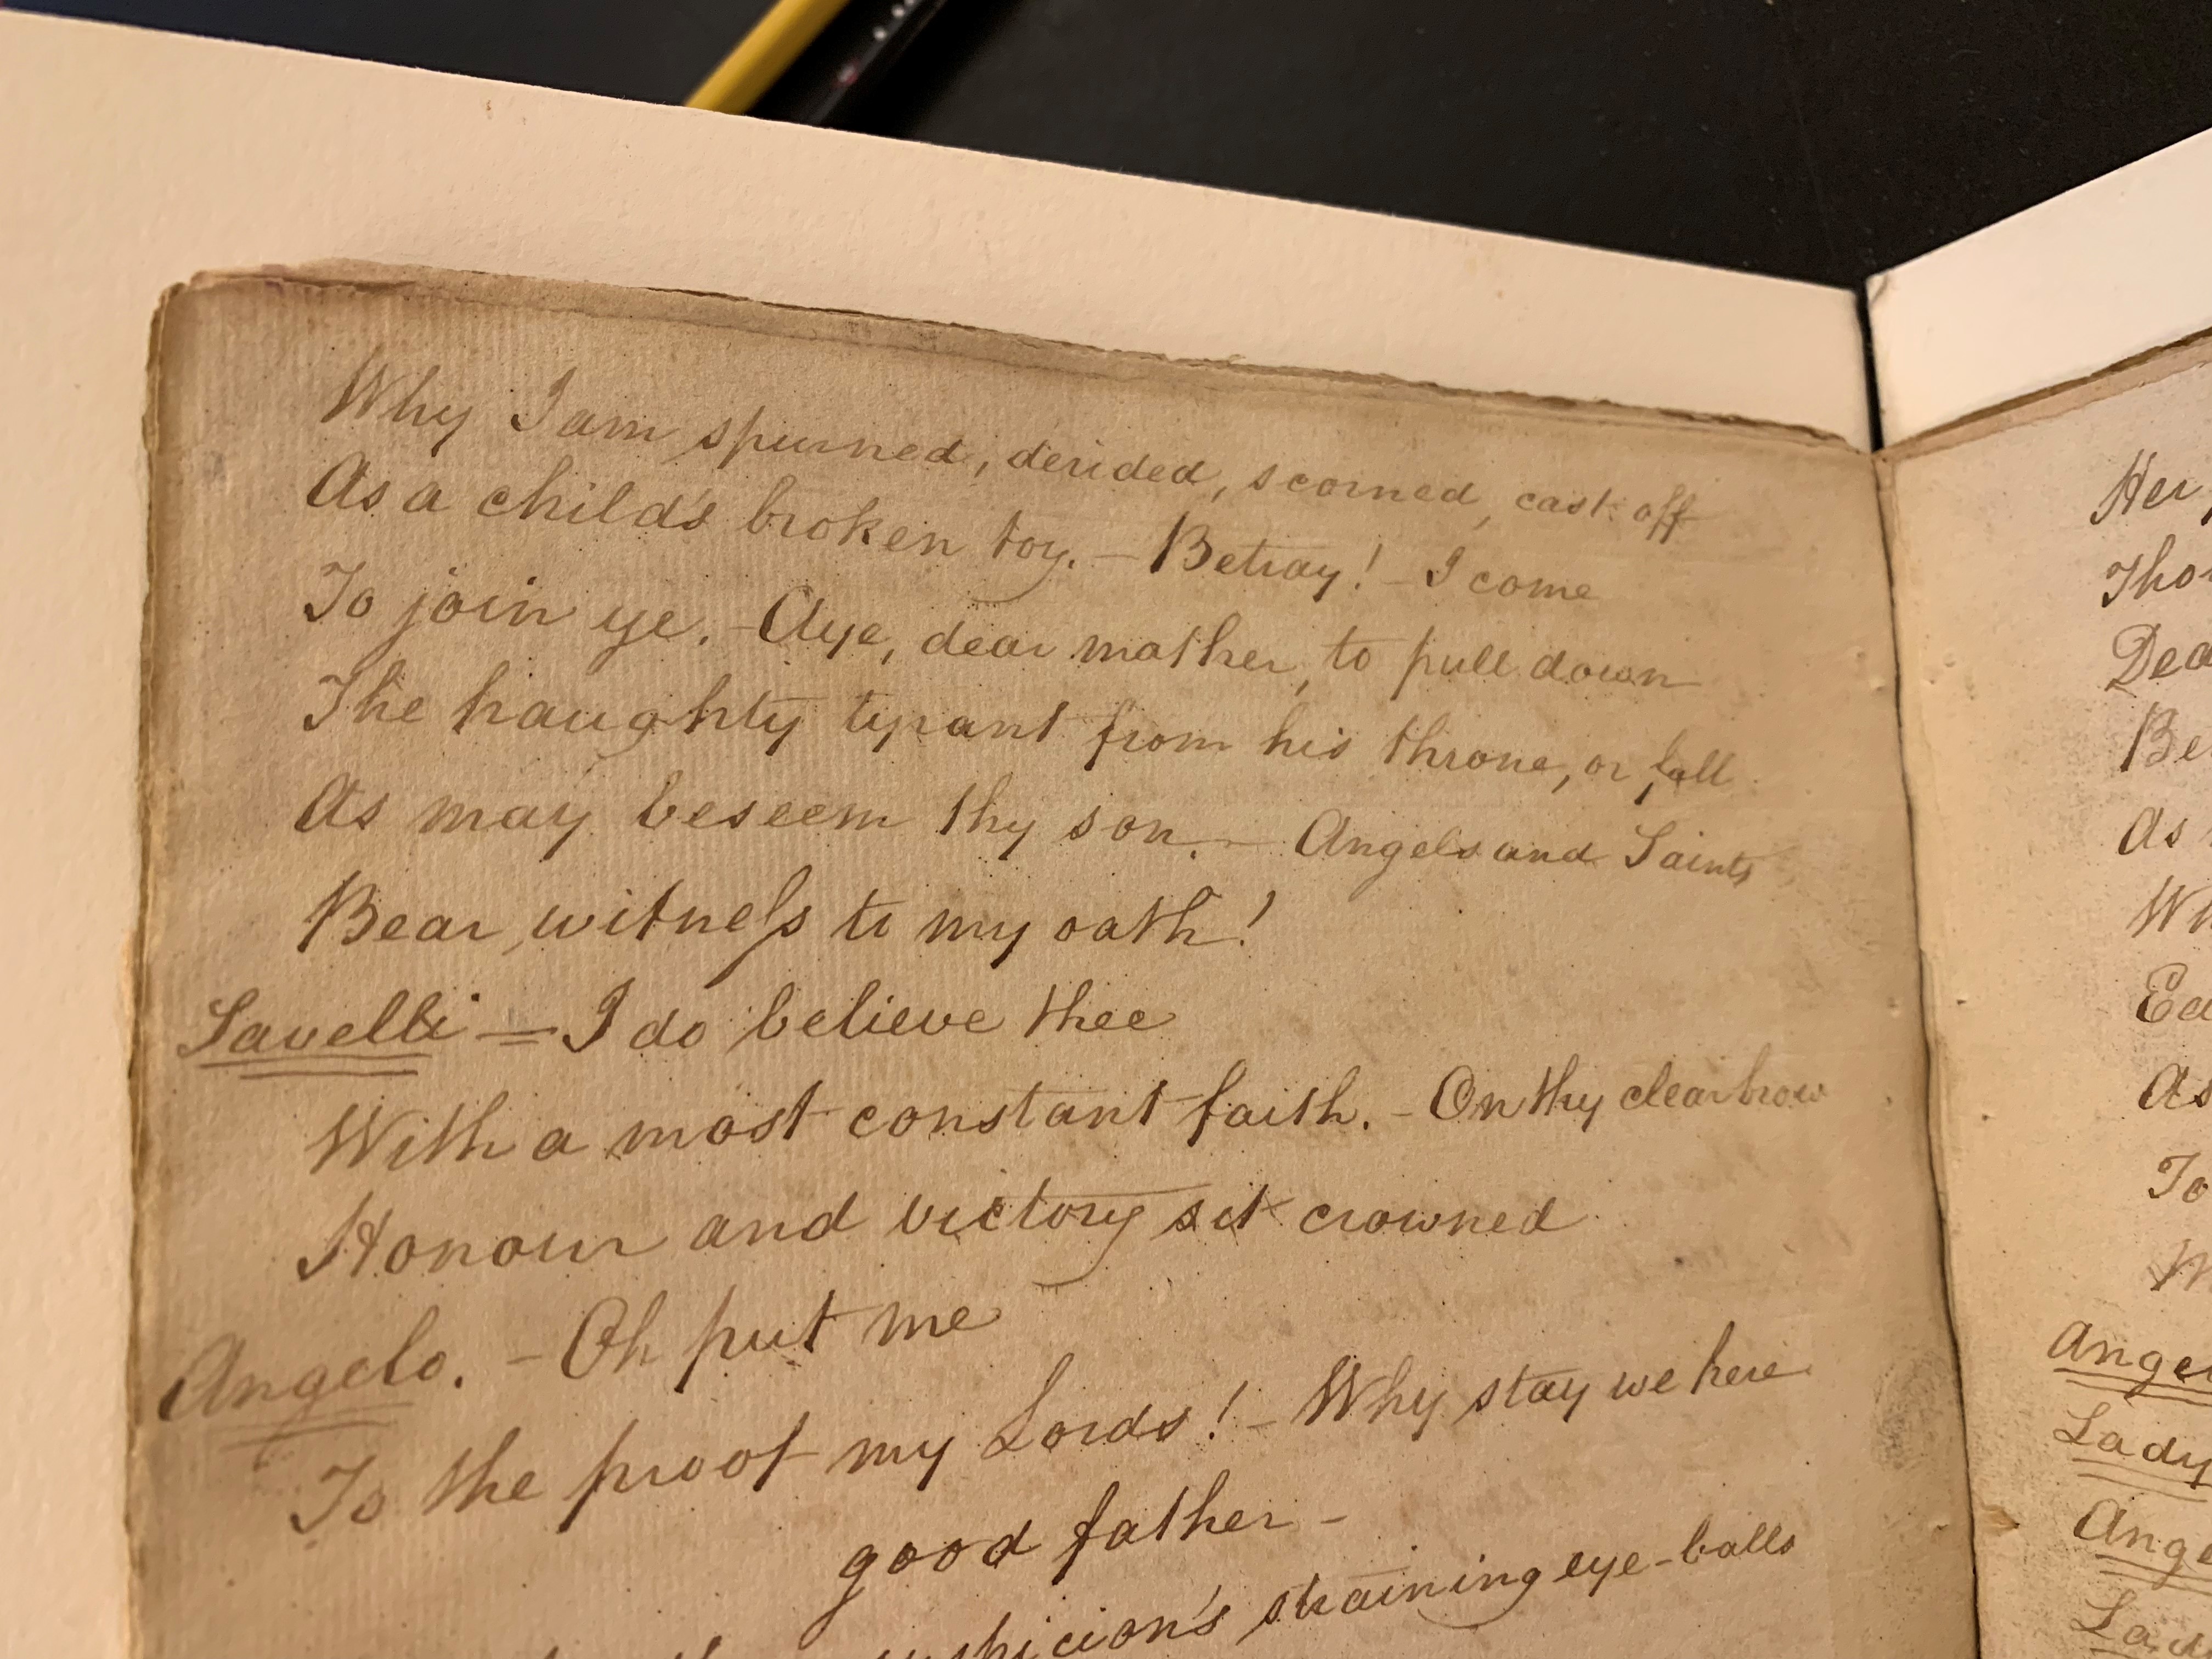 Why I am spurned, derided, scorned, cast off
As a child's broken toy. – Betray! – I come
To join ye. – Aye, dear mother, to pull down
The haughty tyrant from his throne, or fall
As may beseem thy son. – Angels and Saints
Bear, witneſs to my oath!
Savelli = I do believe thee
With a most constant faith. – On thy clear brow
Honour and victory sit crowned
Angelo. – Oh put me
To the proof my Lords! – Why stay we here
good father –
straining eye-balls
Her
Dea
Be
As
Ea
As
To
Ange
Lady
Ange
La